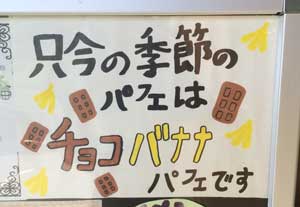 只今の季節の
パフェは
チョコバナナ
パフェです